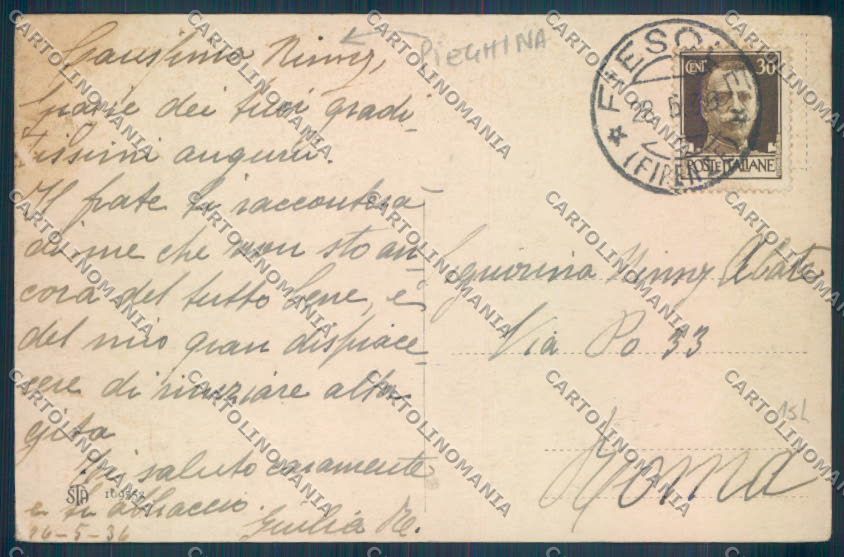 Carissima Ninny,
PIEGHINA
Grazie dei tuoi gradi-
tissimi auguri.
Il frate ti racconterà
di me che non sto an-
cora del tutto bene, e
del mio gran dispiace-
re di rinuziare alla
gita
Ti saluto caramente
e ti abbraccio.
Giulia
STA 10
FIESOLE
(FIREN
CENT 30
POSTE ITALIANE
Signorina Ninny Abate
Via Po 33
Roma
15L
CARTOLINOMANIA